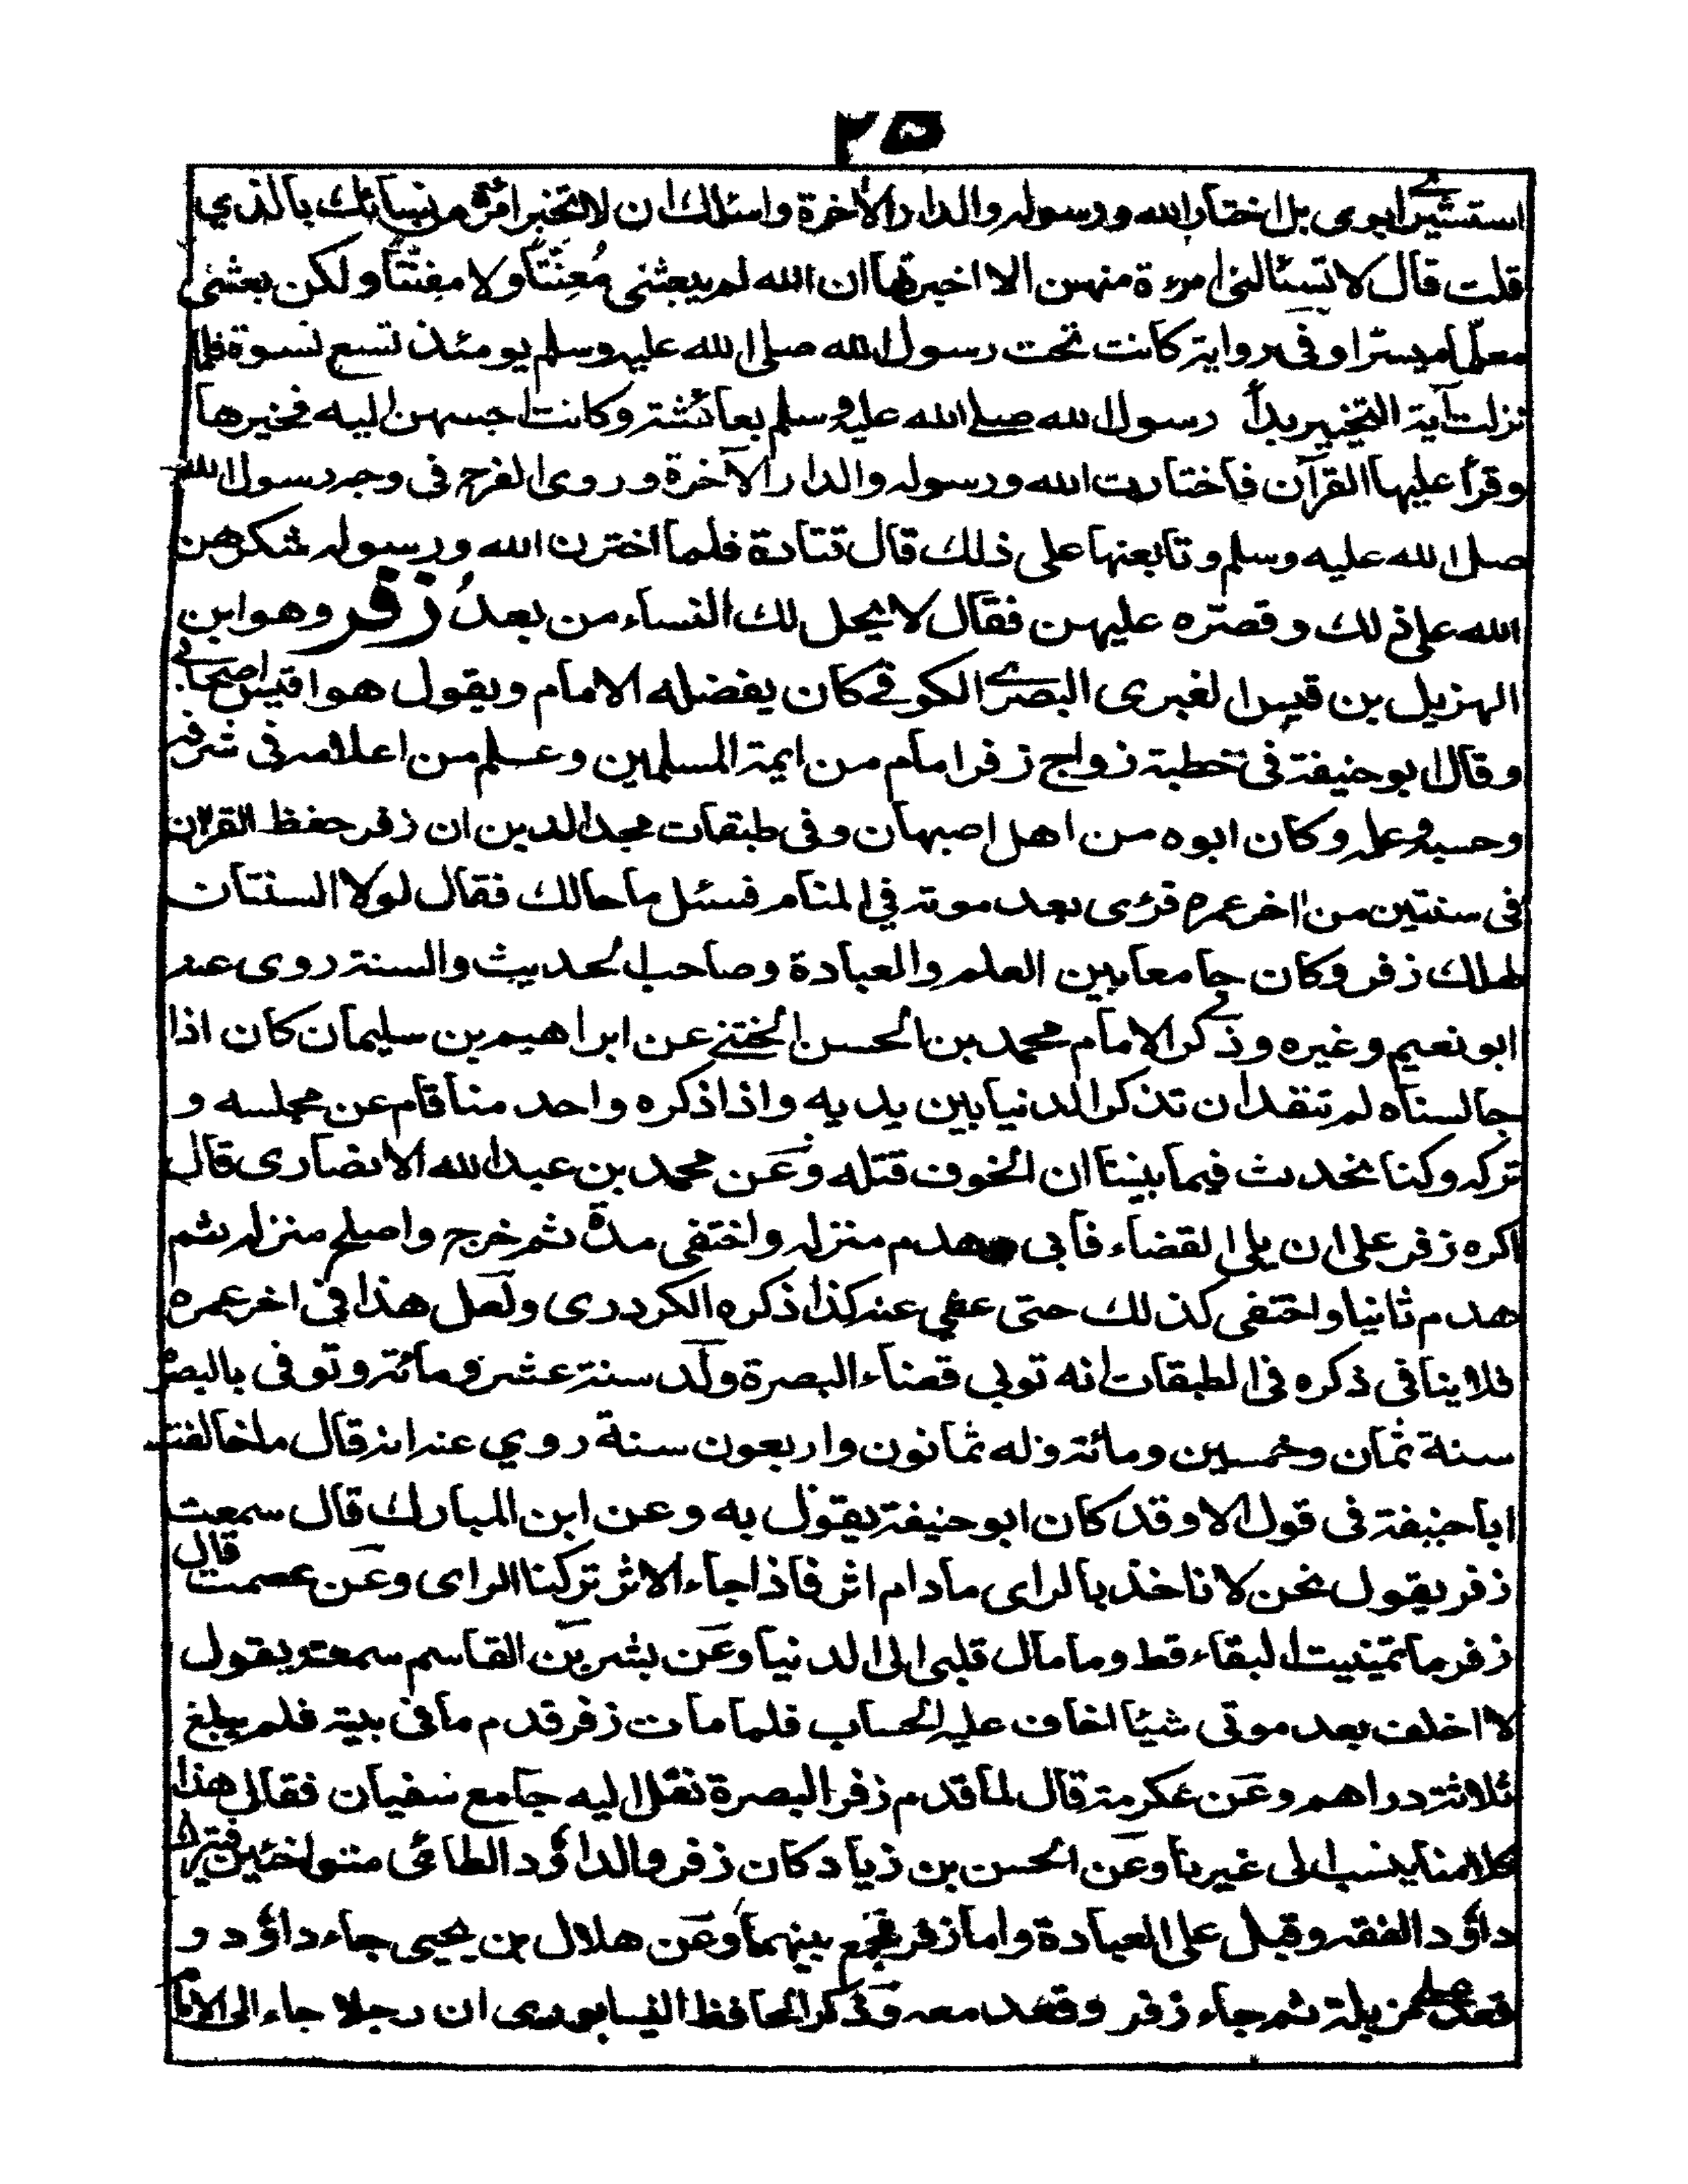 ٢٥
استشير ابوى بل اختار الله ورسوله والدار الآخرة واسئلك ان لا تخبر امرأة من نسائك بالذي
قلت قال لا تسئالنى امرءة منهن الا اخبرتها ان الله لم يبعثنى مُعنِّتًا ولا مفتّنًا ولكن بعثنى
معلّما ميسّرا وفى رواية كانت تحت رسول الله صلى الله عليه وسلم يومئذ تسع نسوة فلما
نزلت آية التخيير بدأ رسول الله صلى الله عليه وسلم بعائشة وكانت احبهن اليه فخيرها
وقرأ عليها القرآن فاختارت الله ورسوله والدار الآخرة وروى الفرح فى وجه رسول الله
صلى الله عليه وسلم وتابعنها على ذلك قال قتادة فلما اخترن الله ورسوله شكرهن
الله على ذلك وقصره عليهن فقال لا يحل لك النساء من بعدُ زفر وهو ابن
الهزيل بن قيس الغبرى البصرى الكوفى كان يفضله الامام ويقول هو اقيس اصحابى
وقال ابو حنيفة فى خطبة زواج زفر امام من ايمة المسلمين وعلم من اعلامه فى شرفه
وحسبه وعمله وكان ابوه من اهل اصبهان وفى طبقات مجد الدين ان زفر حفظ القرآن
فى سنتين من اخر عمره فرئى بعد موته في المنام فسئل ما حالك فقال لولا السنتان
لهلك زفر وكان جامعا بين العلم والعبادة وصاحب الحديث والسنة روى عنه
ابو نعيم وغيره وذكر الامام محمد بن الحسن الختنى عن ابراهيم بن سليمان كان اذا
جالسناه لم نقدر ان تذكر الدنيا بين يديه واذا ذكره واحد منا قام عن مجلسه و
تركه وكنا نحدث فيما بيننا ان الخوف قتله وعن محمد بن عبد الله الانصارى قال
اكره زفر على ان يلى القضاء فابى هدم منزله واختفى مدة ثم خرج واصلح منزله ثم
هدم ثانيا واختفى كذلك حتى عفي عنه كذا ذكره الكردرى ولعل هذا فى اخر عمره
فلا ينافى ذكره فى الطبقات انه تولى قضاء البصرة ولد سنة عشر ومائة وتوفى بالبصرة
سنة ثمان وخمسين ومائة وله ثمانون واربعون سنة روي عنه انه قال ما خالفت
ابا حنيفة فى قول الا وقد كان ابو حنيفة يقول به وعن ابن المبارك قال سمعت
زفر يقول نحن لا ناخذ بالراى مادام اثر فاذا جاء الاثر تركنا الراى وعن عصمت قال
زفر ما تمنيت البقاء قط وما مال قلبى الى الدنيا وعن بشر بن القاسم سمعته يقول
لا اخلف بعد موتى شيئا اخاف عليه الحساب فلما مات زفر قدم ما فى بيته فلم يبلغ
ثلاثة دراهم وعن عكرمة قال لما قدم زفر البصرة نقل اليه جامع سفيان فقال هذا
كلامنا ينسب الى غيرنا وعن الحسن بن زياد كان زفر والداؤد الطائى متواخئين فترك
داؤد الفقه وقبل على العبادة واما زفر فجمع بينهما وعن هلال بن يحيى جاء داؤد و
قعد على مزبلة ثم جاء زفر وقعد معه وذكر الحافظ النيسابورى ان رجلا جاء الى الامام